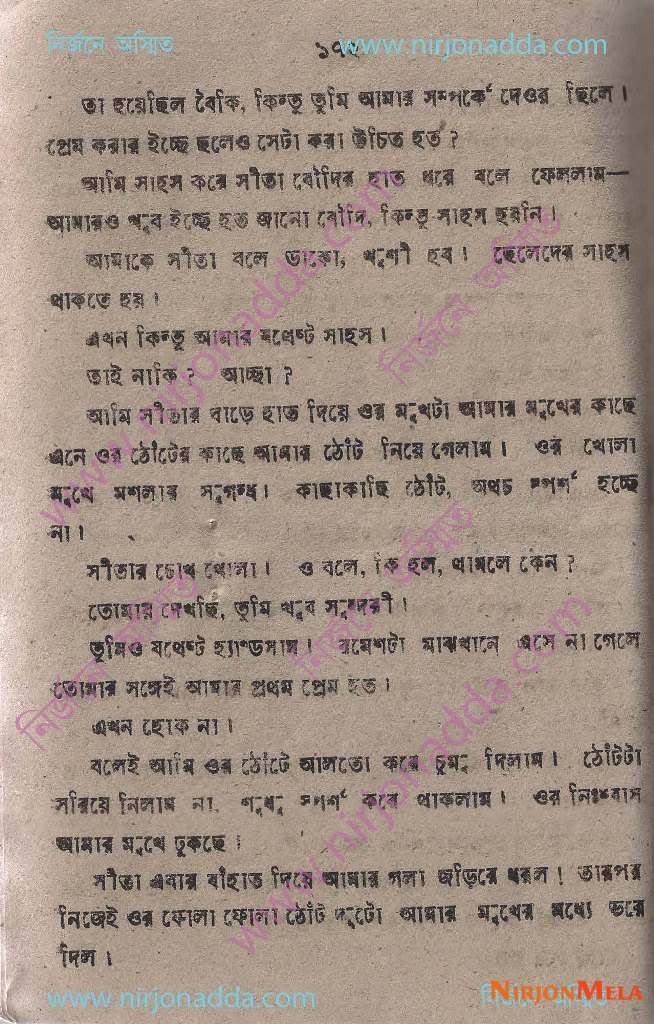 নির্জনে অস্মিত
১৭২
www.nirjonadda.com
তা হয়েছিল বৈকি, কিন্তু তুমি আমার সম্পর্কে দেওর ছিলে।
প্রেম করার ইচ্ছে হলেও সেটা করা উচিত হত?
আমি সাহস করে সীতা বৌদির হাত ধরে বলে ফেললাম—
আমারও খুব ইচ্ছে হত জানো বৌদি, কিন্তু সাহস হয়নি।
আমাকে সীতা বলে ডাকো, খুশী হব। ছেলেদের সাহস
থাকতে হয়।
এখন কিন্তু আমার যথেষ্ট সাহস।
তাই নাকি? আচ্ছা?
আমি সীতার ঘাড়ে হাত দিয়ে ওর মুখটা আমার মুখের কাছে
এনে ওর ঠোঁটের কাছে আমার ঠোঁট নিয়ে গেলাম। ওর খোলা
মুখে মশলার সুগন্ধ। কাছাকাছি ঠোঁট, অথচ স্পর্শ হচ্ছে
না।
সীতার চোখ খোলা। ও বলে, কি হল, থামলে কেন?
তোমায় দেখছি, তুমি খুব সুন্দরী।
তুমিও যথেষ্ট হ্যান্ডসাম। রমেশটা মাঝখানে এসে না গেলে
তোমার সঙ্গেই আমার প্রথম প্রেম হত।
এখন হোক না।
বলেই আমি ওর ঠোঁটে আলতো করে চুমু দিলাম। ঠোঁটটা
সরিয়ে নিলাম না, শুধু স্পর্শ করে থাকলাম। ওর নিঃশ্বাস
আমার মুখে ঢুকছে।
সীতা এবার বাঁহাত দিয়ে আমার গলা জড়িয়ে ধরল! তারপর
নিজেই ওর ফোলা ফোলা ঠোঁট দুটো আমার মুখের মধ্যে ভরে
দিল।
www.nirjonadda.com
NIRJONMELA